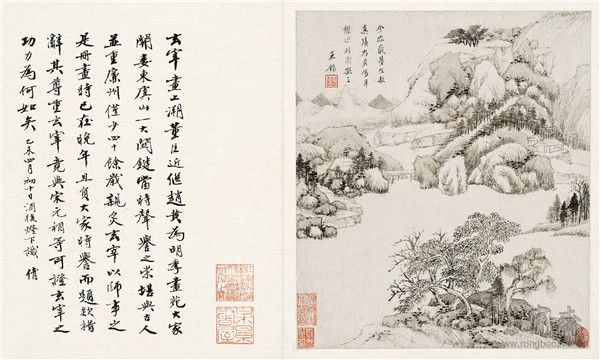 王鑑
玄宰畫上溯董巨近継趙黃為明季畫苑大家
開婁東虞山一大關鍵當時聲譽之崇堪與古人
並重廉州僅少四十餘歲親炙玄宰以師事之
是冊畫時已在晚年且負大家時譽而題款措
辭其尊重玄宰竟與宋元相等可證玄宰之
功力為何如矣 乙未四月初十日酒後燈下識 倩